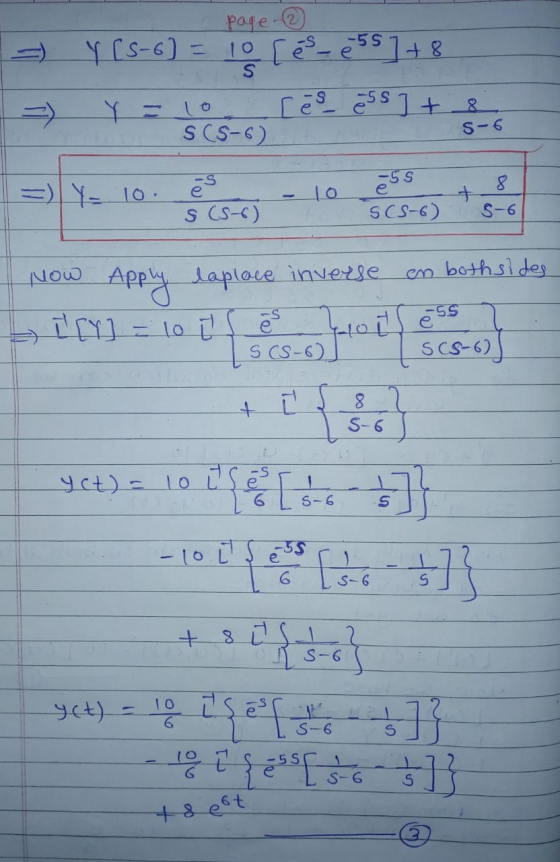 page-②
⇒ Y[S-6] = 10/S [e^-S - e^-5S] + 8
⇒ Y = 10/S(S-6) [e^-S - e^-5S] + 8/S-6
⇒ Y = 10. e^-S/S(S-6) - 10 e^-5S/S(S-6) + 8/S-6
Now Apply laplace inverse on bothsides
⇒ L^-1[Y] = 10 L^-1{e^-S/S(S-6)} -10 L^-1{e^-5S/S(S-6)}
+ L^-1{8/S-6}
y(t) = 10 L^-1{e^-S/6 [1/S-6 - 1/S]}
-10 L^-1{e^-5S/6 [1/S-6 - 1/S]}
+ 8 L^-1{1/S-6}
y(t) = 10/6 L^-1{e^-S[1/S-6 - 1/S]}
- 10/6 L^-1{e^-5S[1/S-6 - 1/S]}
+ 8 e^6t
③